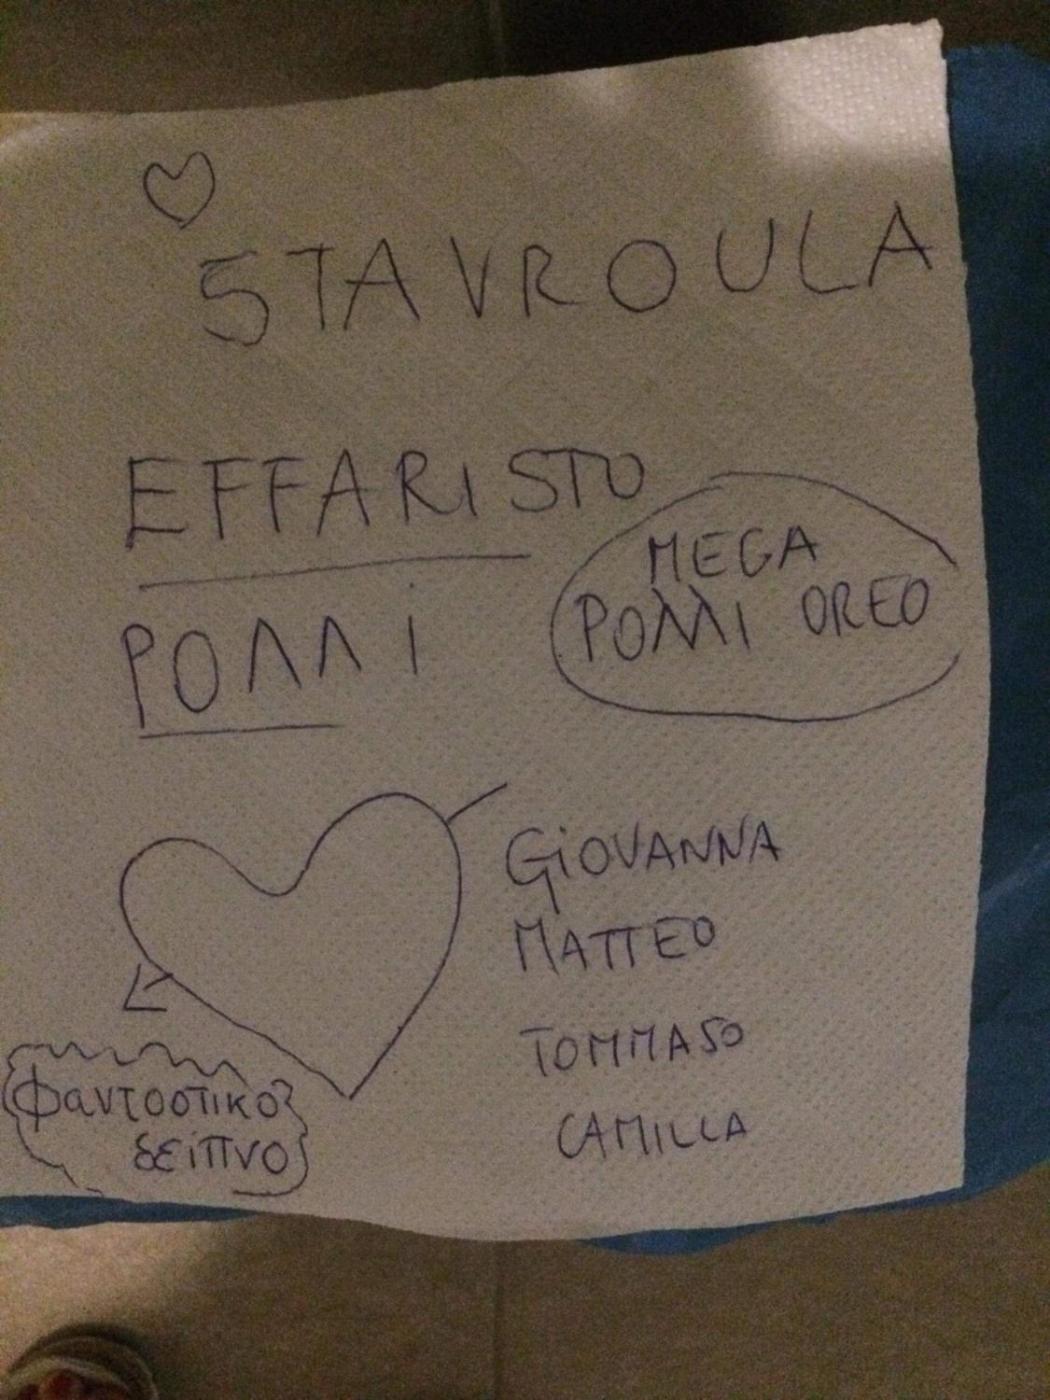 STAVROULA
EFFARISTO
POΛΛi
MEGA
POΛΛI OREO
GiOVANNA
MATTEO
TOMMASO
CAMILLA
Φαντοστικο
δείπνο